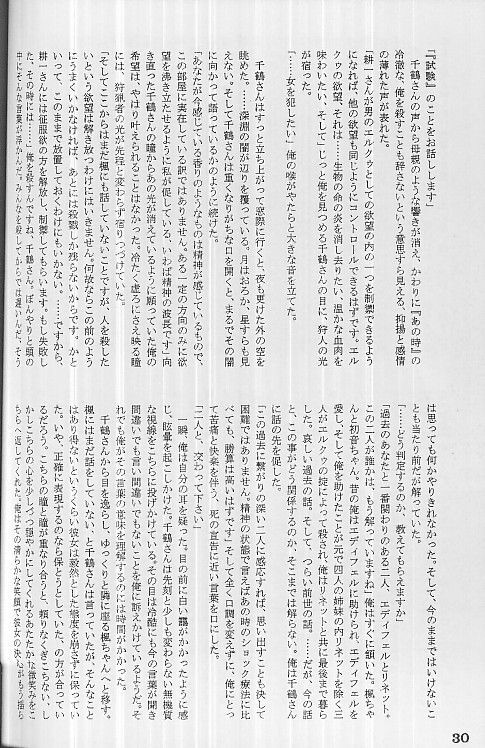 『試験』のことをお話しします」
　千鶴さんの声から母親のような響きが消え、かわりに『あの時』の
冷徹な、俺を殺すことも辞さないという意思すら見える、抑揚と感情
の薄れた声が表れた。
「耕一さんが男のエルクゥとしての欲望の内の一つを制禦できるよう
になれば、他の欲望も同じようにコントロールできるはずです。エル
クゥの欲望、それは……生物の命の炎を消し去りたい、温かな血肉を
味わいたい、そして」じっと俺を見つめる千鶴さんの目に、狩人の光
が宿った。
「……女を犯したい」俺の喉がやたらと大きな音を立てた。
　千鶴さんはすっと立ち上がって窓際に行くと、夜も更けた外の空を
眺めた。……深淵の闇が辺りを覆っている。月はおろか、星すらも見
えない。そして千鶴さんは重くなりがちな口を開くと、まるでその闇
に向かって語っているかのように続けた。
「あなたが今感じている香りのようなものは精神が感じているもので、
この部屋に実在している訳ではありません。ある一定の方向のみに欲
望を沸き立たせるように私が促している、いわば精神の波長です」向
き直った千鶴さんの瞳からあの光が消えているように願っていた俺の
希望は、やはり叶えられることはなかった。冷たく虚ろにさえ映る瞳
には、狩猟者の光が先程と変わらず宿りつづけていた。
「そしてここからはまだ楓にも話していないことですが、人を殺した
いという欲望は解き放つわけにはいきません。何故ならこの前のよう
にうまくいかなければ、あとには殺戮しか残らないからです。かと
いって、このままで放置しておくわけにもいかない。……ですから、
耕一さんには征服欲の方を解放し、制禦してもらいます。もし失敗し
た、その時には……」俺を殺すんですね、千鶴さん。ぼんやりと頭の
中にそんな言葉が浮かんだ。みんなを殺してからでは遅いんだ、そう
は思っても何かやりきれなかった。そして、今のままではいけないこ
とも当たり前だが解っていた。
「……どう判定するのか、教えてもらえますか」
「過去のあなたと一番関わりのある二人、エディフェルとリネット。
この二人が誰かは、もう解っていますね」俺はすぐに頷いた。楓ちゃ
んと初音ちゃん。昔の俺はエディフェルに助けられ、エディフェルを
愛し、そして俺を助けたことが元で四人の姉妹の内リネットを除く三
人がエルクゥの掟によって殺され、俺はリネットと共に最後まで暮ら
した。哀しい過去の話。そして、つらい前世の話。……だが、今の話
と、この事がどう関係するのか、そこまでは解らない。俺は千鶴さん
に話の先を促した。
「この過去に繋がりの深い二人に感応すれば、思い出すことも決して
困難ではありません。精神の状態で言えばあの時のショック療法に比
べても、勝算は高いはずです」そして全く口調を変えずに、俺にとっ
て苦痛と快楽を伴う、死の宣告に近い言葉を口にした。
「二人と、交わって下さい」
　一瞬、俺は自分の耳を疑った。目の前に白い靄がかかったように感
じ、眩暈を起こしかけた。千鶴さんは先刻と少しも変わらない無機質
な視線をこちらに投げかけている。その目は冷酷にも今の言葉が聞き
間違いでも言い間違いでもないことを俺に訴えかけているようだ。そ
れでも俺がその言葉の意味を理解するのには時間がかかった。
　千鶴さんから目を逸らし、ゆっくりと隣に座る楓ちゃんへと移す。
楓にはまだ話をしていない、と千鶴さんは言っていたが、そんなこと
はあり得ないというくらい彼女は毅然とした態度を崩さずに保ってい
た。いや、正確に表現するのなら保とうとしていた、の方が合ってい
るだろう。こちらの瞳と瞳が重なり合うと、頼りなくぎこちない、し
かしこちらの心を少しづつ穏やかにしてくれるあたたかな微笑みをこ
ちらへ返してくれた。俺はその清らかな笑顔で彼女の決心がもう揺ら
30